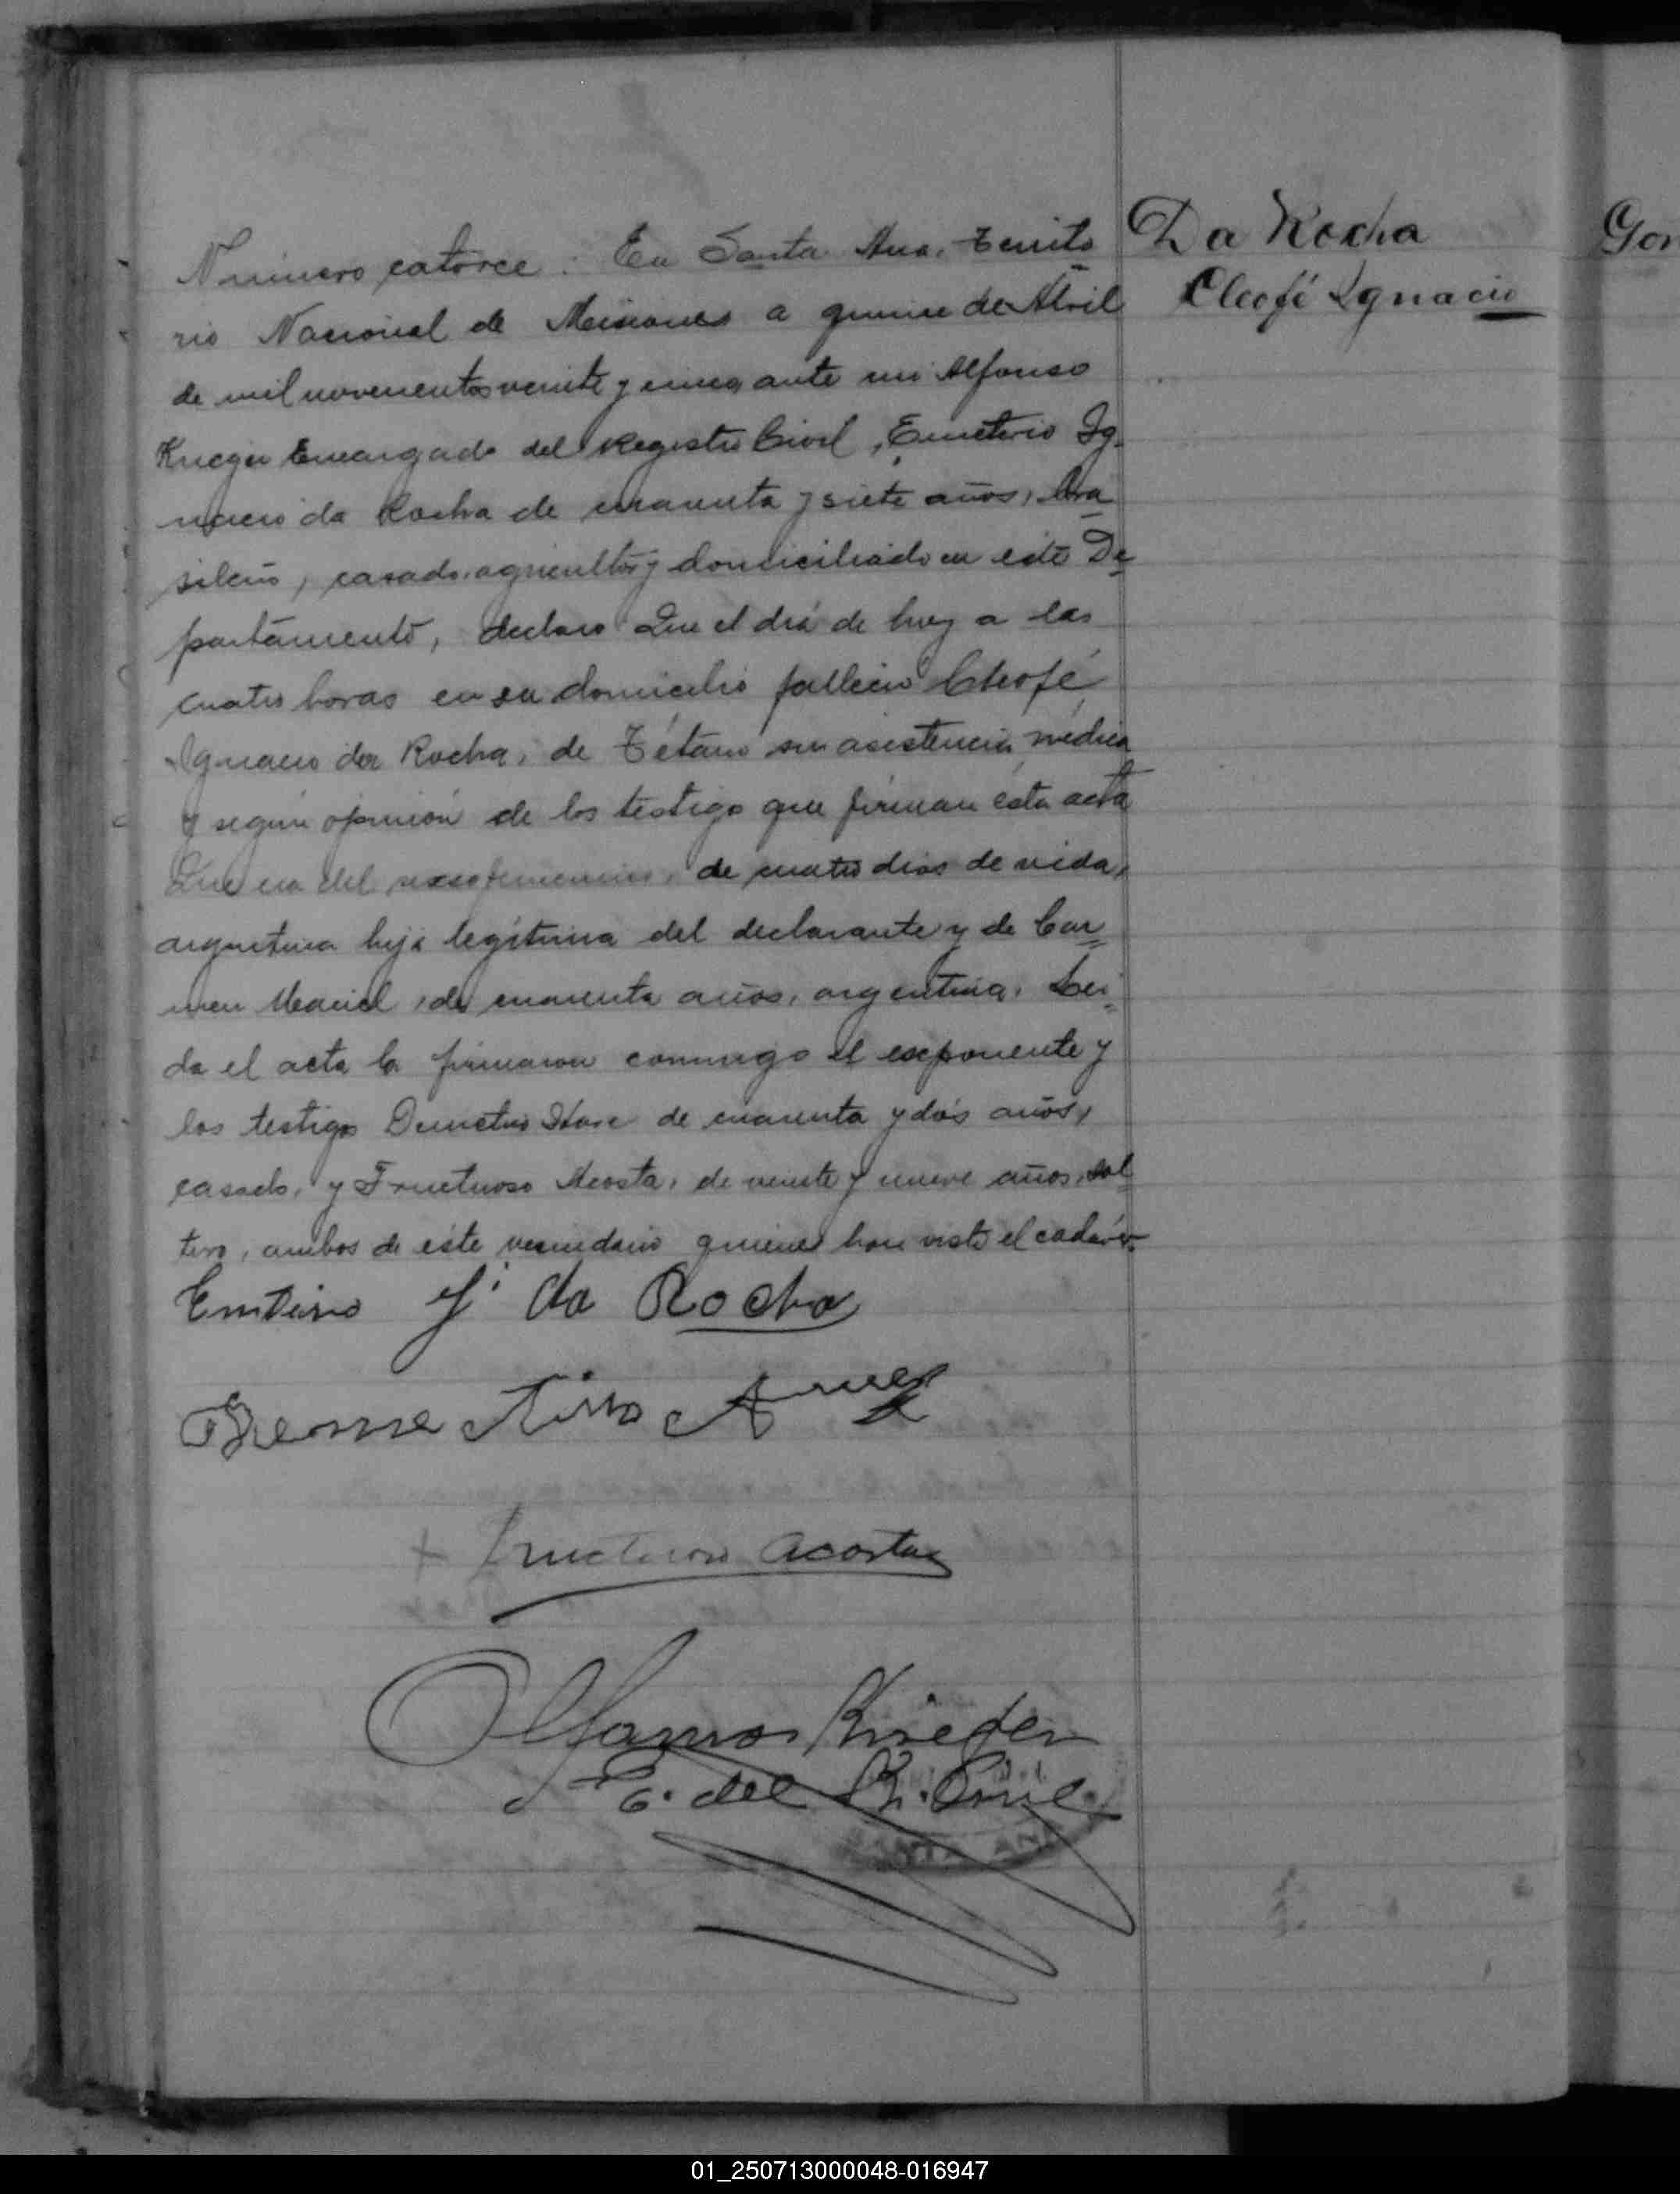 Da Rocha
Cleofé Ignacio
Gon
Número catorce: En Santa Ana, Territo
rio Nacional de Misiones a quince de Abril
de mil novecientos veinte y cinco, ante mi Alfonso
Krieger Encargado del Registro Civil, Emeterio Ig-
nacio da Rocha de cuarenta y siete años, bra
sileño, casado, agricultor y domiciliado en este De
partamento, declaro Que el día de hoy a las
cuatro horas en su domicilio falleció Cleofé
Ignacio da Rocha, de Tétano sin asistencia médica
y según opinión de los testigo que firman ésta acta
Que era del sexo femenino, de cuatro dias de vida,
argentina hija legítima del declarante y de Car
men Maciel, de cuarenta años, argentina. Lei
da el acta la firmaron conmigo el exponente y
los testigos Demetrio de cuarenta y dós años,
casado, y Fructuoso Acosta, de veinte y nueve años, sol
tero, ambos de éste vecindario quienes han visto el cadáver.
Emterio J. da Rocha
+ Fructuoso Acosta
Alfonso Krieger
E. del R. Civil
SANTA ANA
01_250713000048-016947